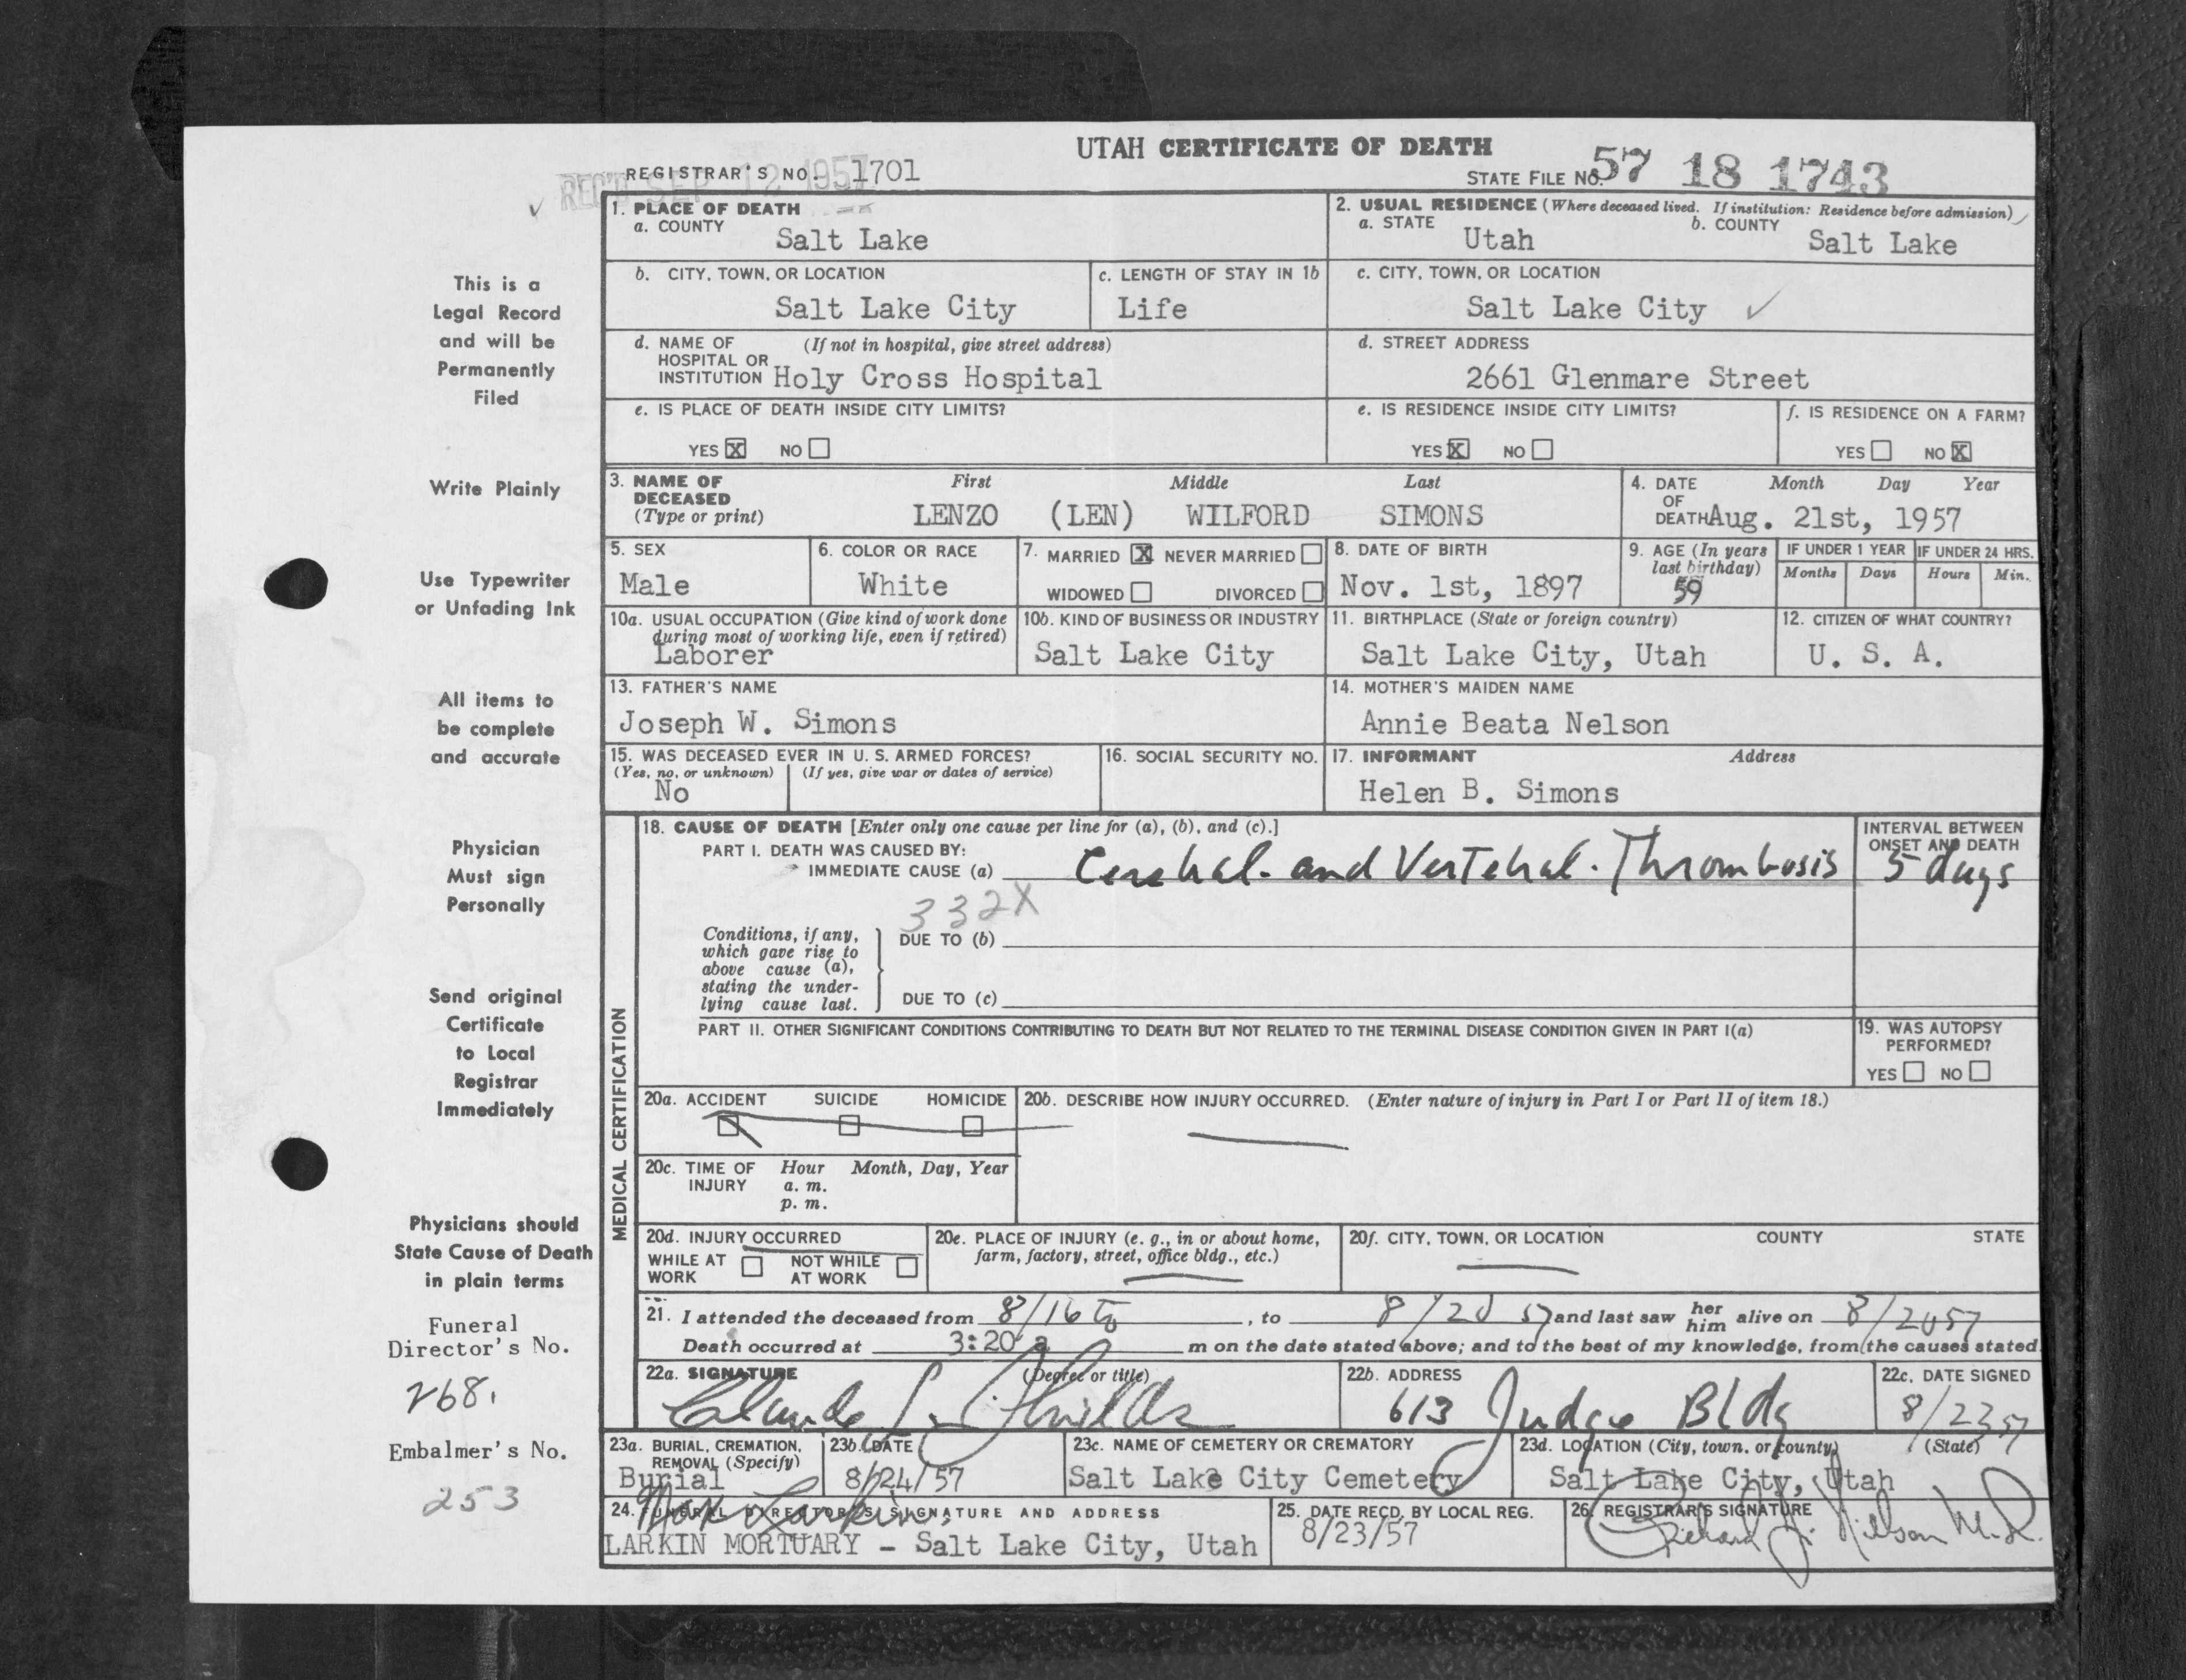 UTAH CERTIFICATE OF DEATH
REGISTRAR'S NO. 1701
REC'D SEP 12 1957
STATE FILE NO. 57 18 1743
This is a
Legal Record
and will be
Permanently
Filed
Write Plainly
Use Typewriter
or Unfading Ink
All items to
be complete
and accurate
Physician
Must sign
Personally
Send original
Certificate
to Local
Registrar
Immediately
Physicians should
State Cause of Death
in plain terms
Funeral
Director's No.
268.
Embalmer's No.
253
1. PLACE OF DEATH
a. COUNTY
Salt Lake
2. USUAL RESIDENCE (Where deceased lived. If institution: Residence before admission)
a. STATE
Utah
b. COUNTY
Salt Lake
b. CITY, TOWN, OR LOCATION
Salt Lake City
c. LENGTH OF STAY IN 1b
Life
c. CITY, TOWN, OR LOCATION
Salt Lake City ✓
d. NAME OF (If not in hospital, give street address)
HOSPITAL OR
INSTITUTION Holy Cross Hospital
d. STREET ADDRESS
2661 Glenmare Street
e. IS PLACE OF DEATH INSIDE CITY LIMITS?
YES X NO
e. IS RESIDENCE INSIDE CITY LIMITS?
YES X NO
f. IS RESIDENCE ON A FARM?
YES NO X
3. NAME OF DECEASED (Type or print)
First Middle Last
LENZO (LEN) WILFORD SIMONS
4. DATE OF DEATH Month Day Year
Aug. 21st, 1957
5. SEX
Male
6. COLOR OR RACE
White
7. MARRIED X NEVER MARRIED
WIDOWED DIVORCED
8. DATE OF BIRTH
Nov. 1st, 1897
9. AGE (In years last birthday)
59
IF UNDER 1 YEAR
Months Days
IF UNDER 24 HRS.
Hours Min.
10a. USUAL OCCUPATION (Give kind of work done
during most of working life, even if retired)
Laborer
10b. KIND OF BUSINESS OR INDUSTRY
Salt Lake City
11. BIRTHPLACE (State or foreign country)
Salt Lake City, Utah
12. CITIZEN OF WHAT COUNTRY?
U. S. A.
13. FATHER'S NAME
Joseph W. Simons
14. MOTHER'S MAIDEN NAME
Annie Beata Nelson
15. WAS DECEASED EVER IN U. S. ARMED FORCES?
(Yes, no, or unknown) (If yes, give war or dates of service)
No
16. SOCIAL SECURITY NO.
17. INFORMANT Address
Helen B. Simons
MEDICAL CERTIFICATION
18. CAUSE OF DEATH [Enter only one cause per line for (a), (b), and (c).]
PART I. DEATH WAS CAUSED BY:
IMMEDIATE CAUSE (a) Cerebral. and Vertebral. Thrombosis
INTERVAL BETWEEN
ONSET AND DEATH
5 days
332X
Conditions, if any,
which gave rise to
above cause (a),
stating the under-
lying cause last.
DUE TO (b)
DUE TO (c)
PART II. OTHER SIGNIFICANT CONDITIONS CONTRIBUTING TO DEATH BUT NOT RELATED TO THE TERMINAL DISEASE CONDITION GIVEN IN PART I(a)
19. WAS AUTOPSY
PERFORMED?
YES NO
20a. ACCIDENT SUICIDE HOMICIDE
20b. DESCRIBE HOW INJURY OCCURRED. (Enter nature of injury in Part I or Part II of item 18.)
20c. TIME OF INJURY Hour Month, Day, Year
a. m.
p. m.
20d. INJURY OCCURRED
WHILE AT WORK NOT WHILE AT WORK
20e. PLACE OF INJURY (e. g., in or about home,
farm, factory, street, office bldg., etc.)
20f. CITY, TOWN, OR LOCATION COUNTY STATE
21. I attended the deceased from 8/16 to, to 8/20 57 and last saw her him alive on 8/20 57
Death occurred at 3:20 a m on the date stated above; and to the best of my knowledge, from the causes stated.
22a. SIGNATURE (Degree or title)
Claude L. Shields
22b. ADDRESS
613 Judge Bldg
22c. DATE SIGNED
8/23 57
23a. BURIAL, CREMATION,
REMOVAL (Specify)
Burial
23b. DATE
8/24/57
23c. NAME OF CEMETERY OR CREMATORY
Salt Lake City Cemetery
23d. LOCATION (City, town, or county) (State)
Salt Lake City, Utah
24. FUNERAL DIRECTOR'S SIGNATURE AND ADDRESS
LARKIN MORTUARY - Salt Lake City, Utah
25. DATE RECD. BY LOCAL REG.
8/23/57
26. REGISTRAR'S SIGNATURE
Richard J. Nilson M.D.